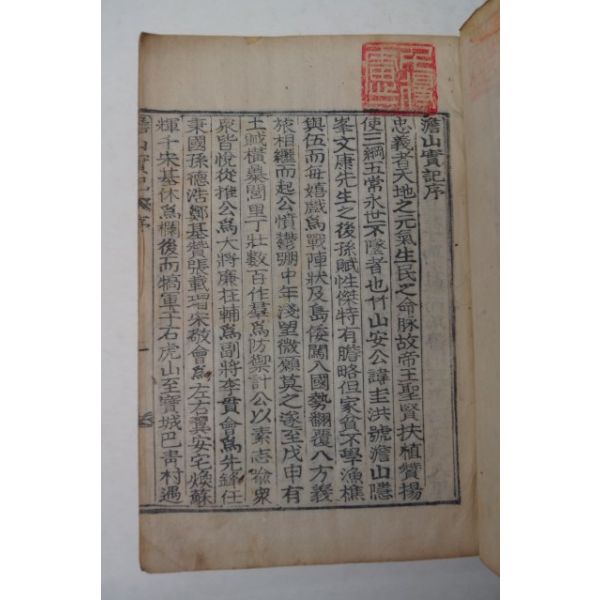 澹山實記序
忠義者天地之元氣生民之命脉故帝王聖賢扶植贊揚
使三綱五常永世不墜者也竹山安公諱圭洪號澹山隱
峯文康先生之後孫賦性傑特有膽略但家貧不學漁樵
與伍而每嬉戲爲戰陣狀及島倭闖入國勢翻覆八方義
旅相繼而起公憤鬱弸中年淺望微願莫之遂至戊申有
土賊橫暴閭里丁壯數百作羣爲防禦計公以素志喩衆
衆皆悅從推公爲大將廉在輔爲副將李貫會爲先鋒任
秉國孫德浩鄭基贊張載 宋敬會爲左右翼安宅煥蘇
輝千宋基休爲欄後而犒軍于右虎山至寶城巴靑村遇
澹山實記 序 一